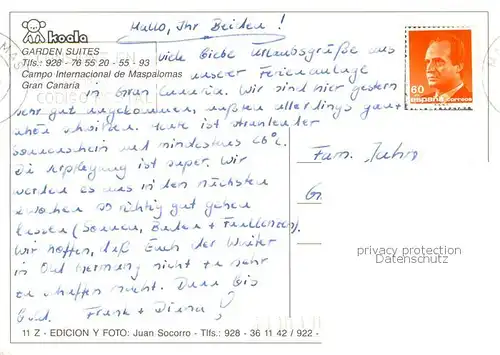 koala
GARDEN SUITES
Tlfs.: 928 - 76 55 20 - 55 - 93
Campo Internacional de Maspalomas
Gran Canaria
Hallo, Ihr Beiden!
viele liebe Urlaubsgrüße aus
unserer Ferienanlage
in Gran Canaria. Wir sind hier gestern
sehr gut angekommen, mußten allerdings ganz
schön schwitzen. Heute ist strahlender
Sonnenschein und mindestens 28°C.
Die Verpflegung ist super. Wir
werden es uns in den nächsten
2 Wochen so richtig gut gehen
lassen (Sonnen, Baden + Faullenzen).
Wir hoffen, daß Euch der Winter
in Old Germany nicht zu sehr
zu schaffen macht. Dann bis
bald. Frank + Diana
60
españa correos
Fam. Jahn
privacy protection
Datenschutz
11 Z - EDICION Y FOTO: Juan Socorro - Tlfs.: 928 - 36 11 42 / 922 -